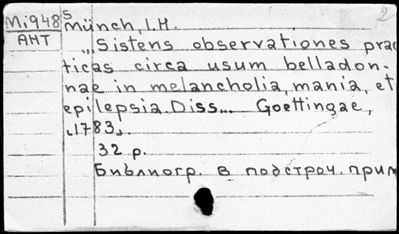 Mi948s Münch, I.H. 2
АНТ
„Sistens observationes prac
ticas circa usum belladon-
nae in melancholia, mania, et
epilepsia. Diss... Goettingae,
„1783„.
32 p.
Библиогр. в подстроч. прим